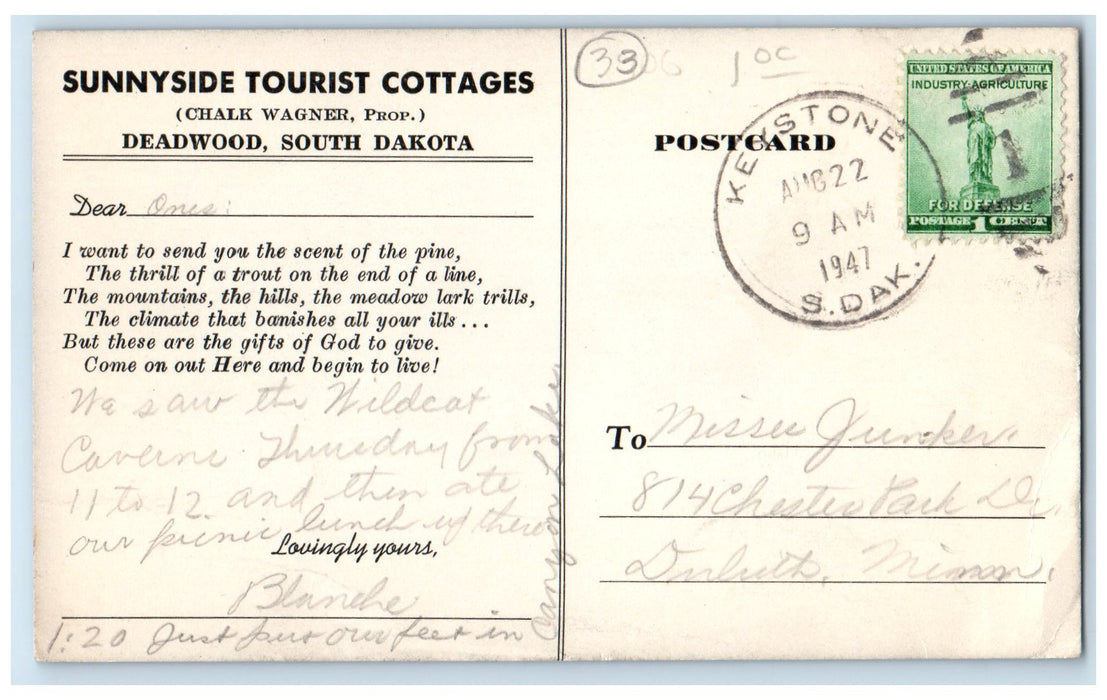 SUNNYSIDE TOURIST COTTAGES
(CHALK WAGNER, PROP.)
DEADWOOD, SOUTH DAKOTA
Dear Ones:
I want to send you the scent of the pine,
The thrill of a trout on the end of a line,
The mountains, the hills, the meadow lark trills,
The climate that banishes all your ills...
But these are the gifts of God to give.
Come on out Here and begin to live!
We saw the Wildcat
Caverns Thursday from
11 to 12 and then ate
our picnic lunch up there
Lovingly yours,
Blanche
1:20 Just put our feet in
Canyon Lake
33
06
1oc
POSTCARD
KEYSTONE
AUG 22
9 AM
1947
S. DAK.
UNITED STATES OF AMERICA
INDUSTRY-AGRICULTURE
1
FOR DEFENSE
POSTAGE 1 CENT
To Misses Juncker.
814 Chester Park Dr.
Duluth, Minn.